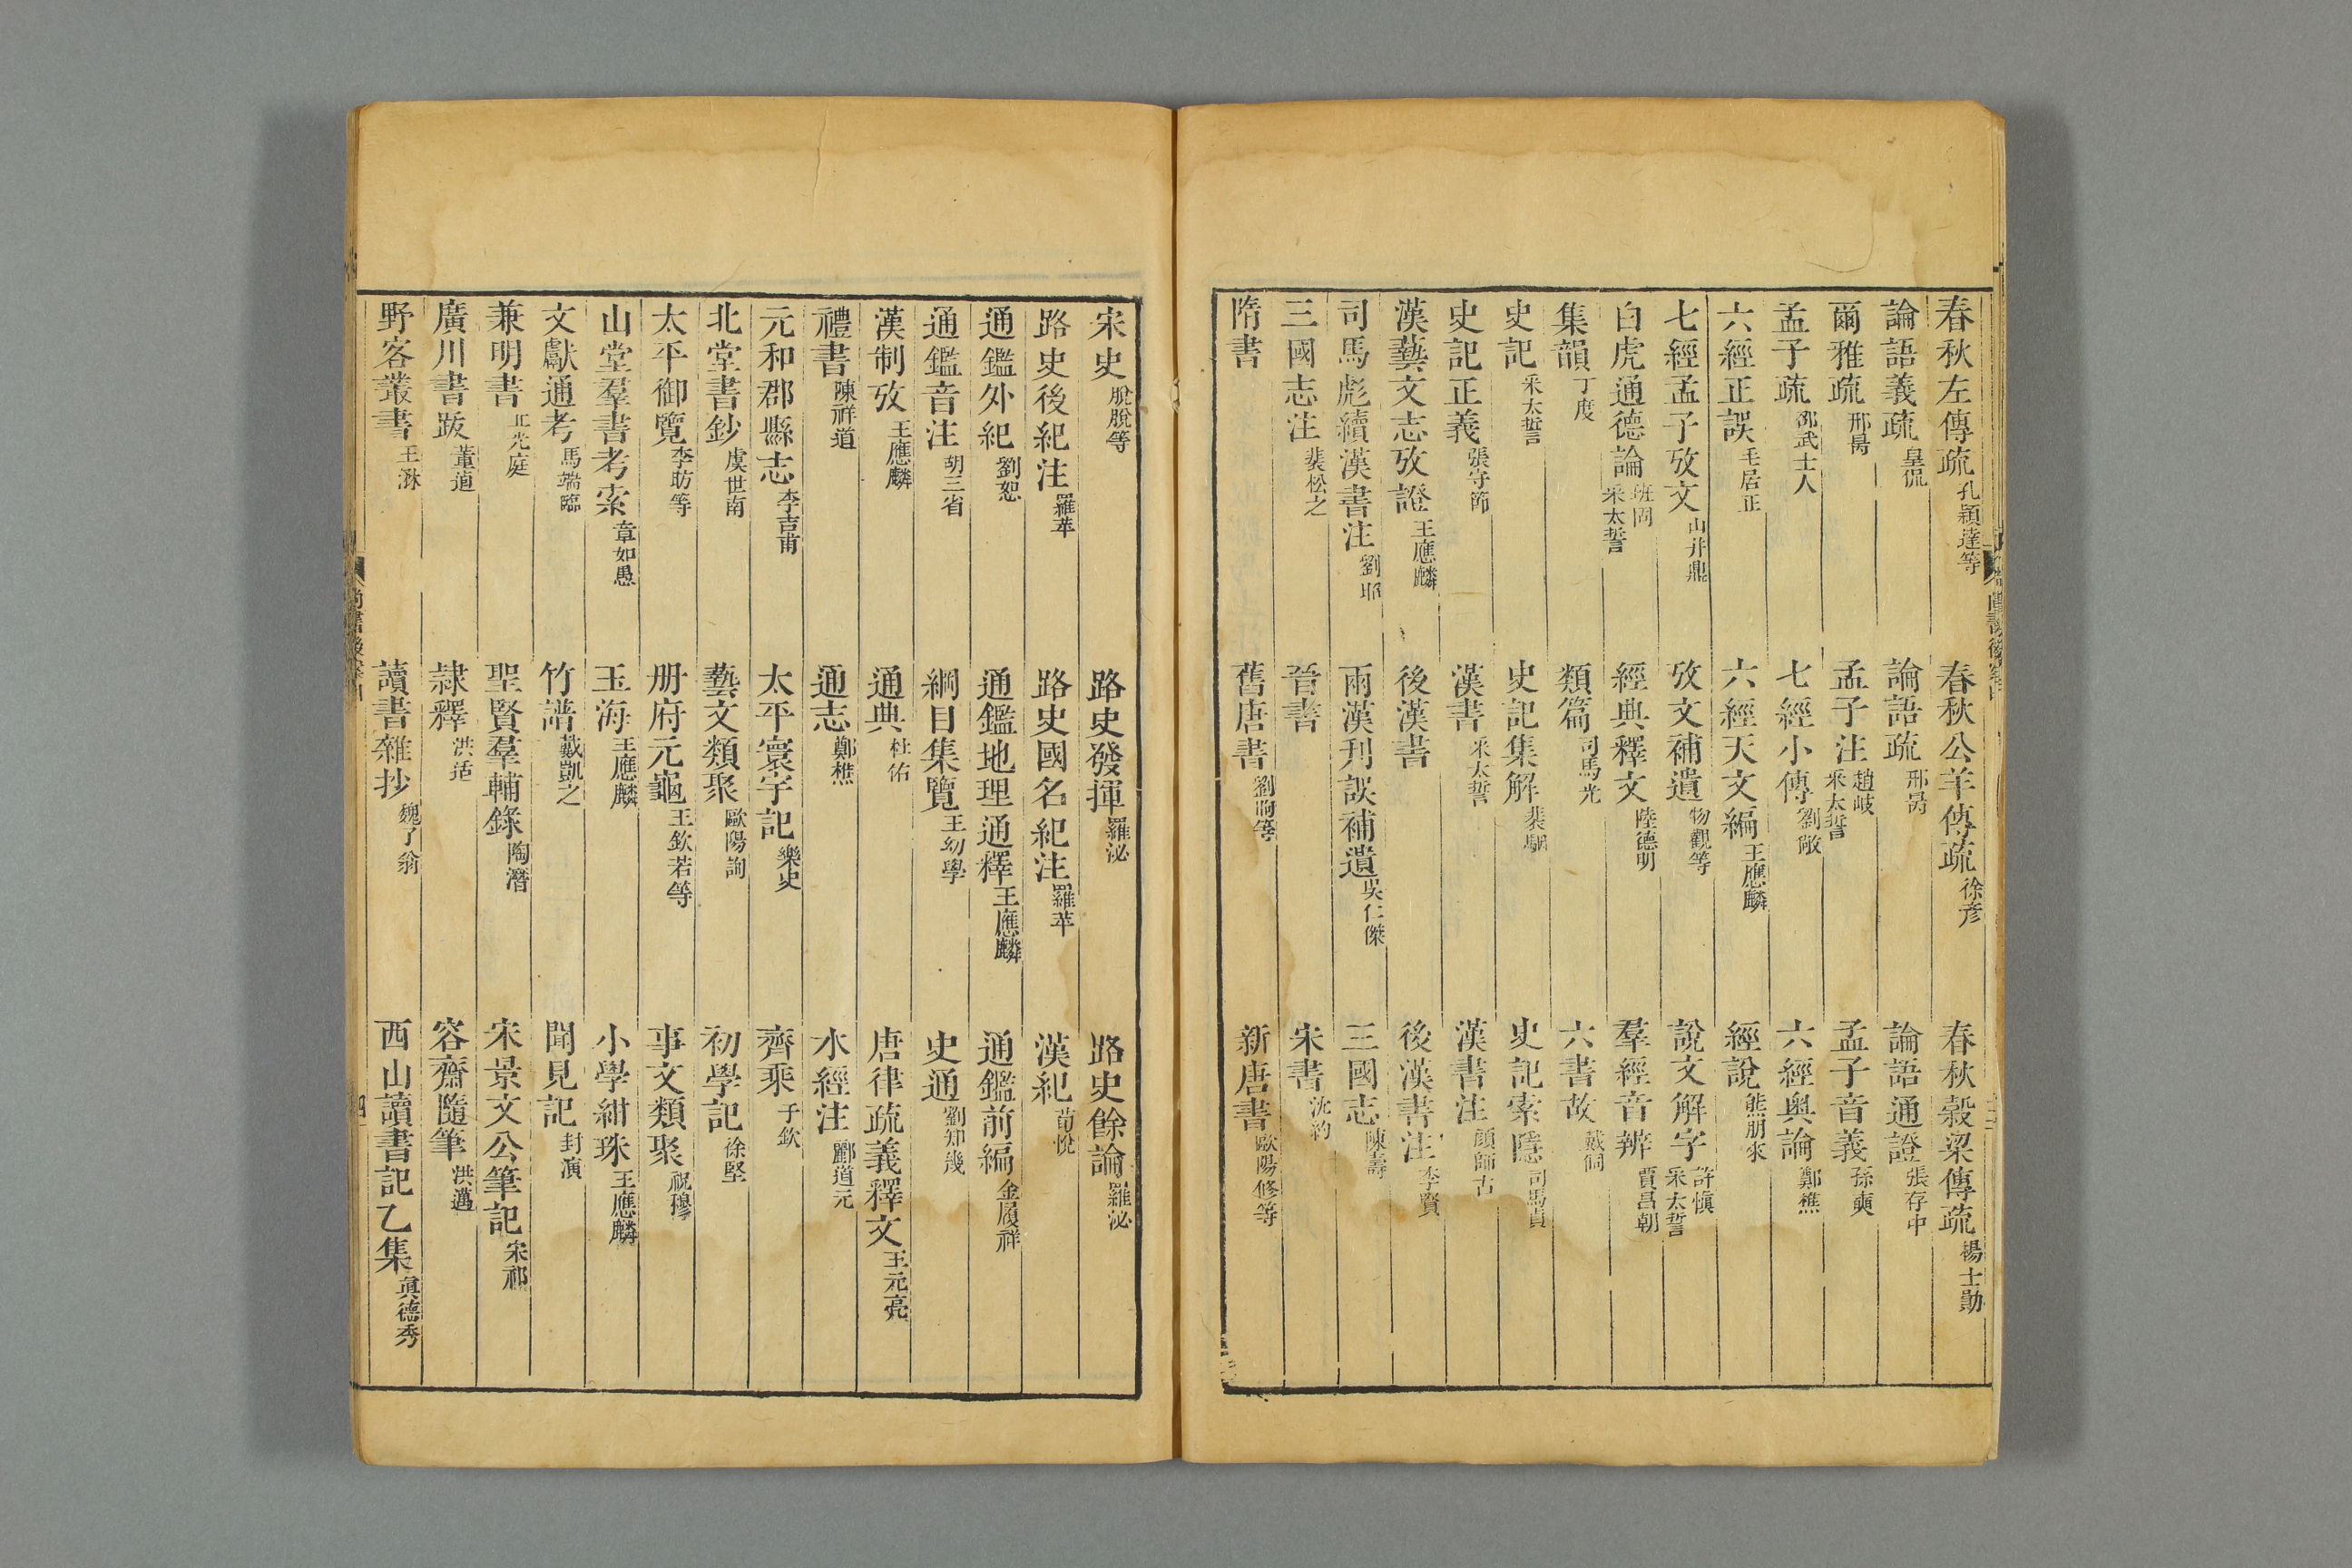 春秋左傳疏 孔穎達等 春秋公羊傳疏 徐彥 春秋穀梁傳疏 楊士勛
論語義疏 皇侃 論語疏 邢昺 論語通證 張存中
爾雅疏 邢昺 孟子注 趙岐 采太誓 孟子音義 孫奭
孟子疏 邵武士人 七經小傳 劉敞 六經奧論 鄭樵
六經正誤 毛居正 六經天文編 王應麟 經說 熊朋來
七經孟子攷文 山井鼎 攷文補遺 物觀等 說文解字 許慎 采太誓
白虎通德論 班固 采太誓 經典釋文 陸德明 羣經音辨 賈昌朝
集韻 丁度 類篇 司馬光 六書故 戴侗
史記 采太誓 史記集解 裴駰 史記索隱 司馬貞
史記正義 張守節 漢書 采太誓 漢書注 顏師古
漢藝文志攷證 王應麟 後漢書 後漢書注 李賢
司馬彪續漢書注 劉昭 兩漢刋誤補遺 吳仁傑 三國志 陳壽
三國志注 裴松之 晉書 宋書 沈約
隋書 舊唐書 劉昫等 新唐書 歐陽修等
宋史 脫脫等 路史發揮 羅泌 路史餘論 羅泌
路史後紀注 羅苹 路史國名紀注 羅苹 漢紀 荀悅
通鑑外紀 劉恕 通鑑地理通釋 王應麟 通鑑前編 金履祥
通鑑音注 胡三省 綱目集覽 王幼學 史通 劉知幾
漢制攷 王應麟 通典 杜佑 唐律疏義釋文 王元亮
禮書 陳祥道 通志 鄭樵 水經注 酈道元
元和郡縣志 李吉甫 太平寰宇記 樂史 齊乘 于欽
北堂書鈔 虞世南 藝文類聚 歐陽詢 初學記 徐堅
太平御覽 李昉等 册府元龜 王欽若等 事文類聚 祝穆
山堂羣書考索 章如愚 玉海 王應麟 小學紺珠 王應麟
文獻通考 馬端臨 竹譜 戴凱之 聞見記 封演
兼明書 丘光庭 聖賢羣輔錄 陶潛 宋景文公筆記 宋祁
廣川書跋 董逌 隸釋 洪适 容齋隨筆 洪邁
野客叢書 王楙 讀書雜抄 魏了翁 西山讀書記乙集 真德秀